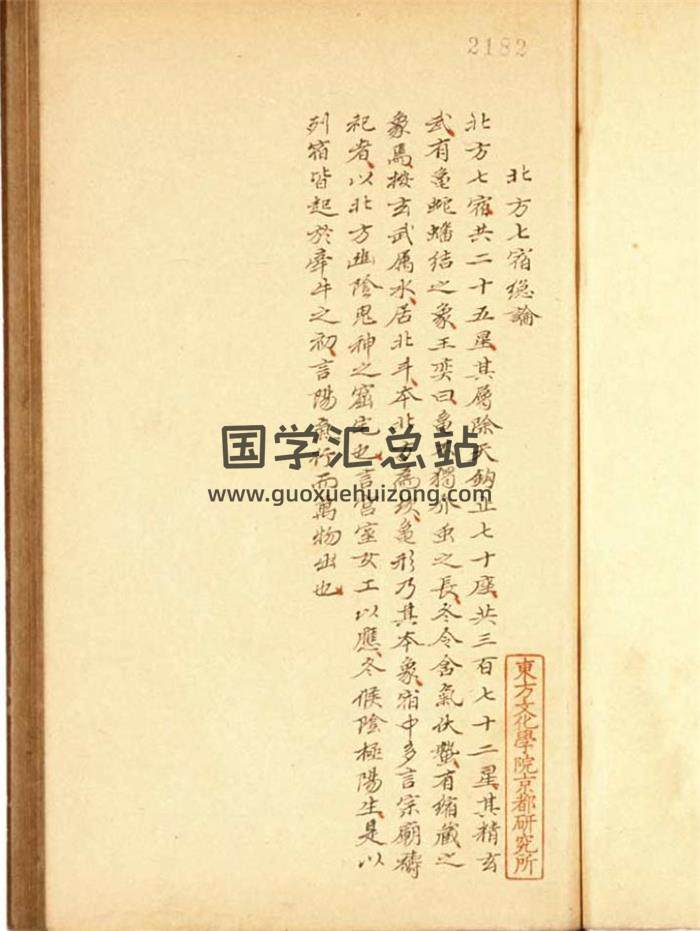 2182
北方七宿總論
北方七宿共二十五星其屬除天鉤止七十座共三百七十二星其精玄
武有龜蛇蟠結之象王奕曰龜獨介虫之長冬令舍氣伏蟄有縮藏之
象焉按玄武屬水居北斗本北方為龜形乃其本象宿中多言宗廟禱
祀者以北方幽陰鬼神之窟宅也言宮室女工以應冬候陰極陽生是以
列宿皆起於牽牛之初言陽氣行而萬物出也
東方文化學院京都研究所
国学汇总站
www.guoxuehuizong.com